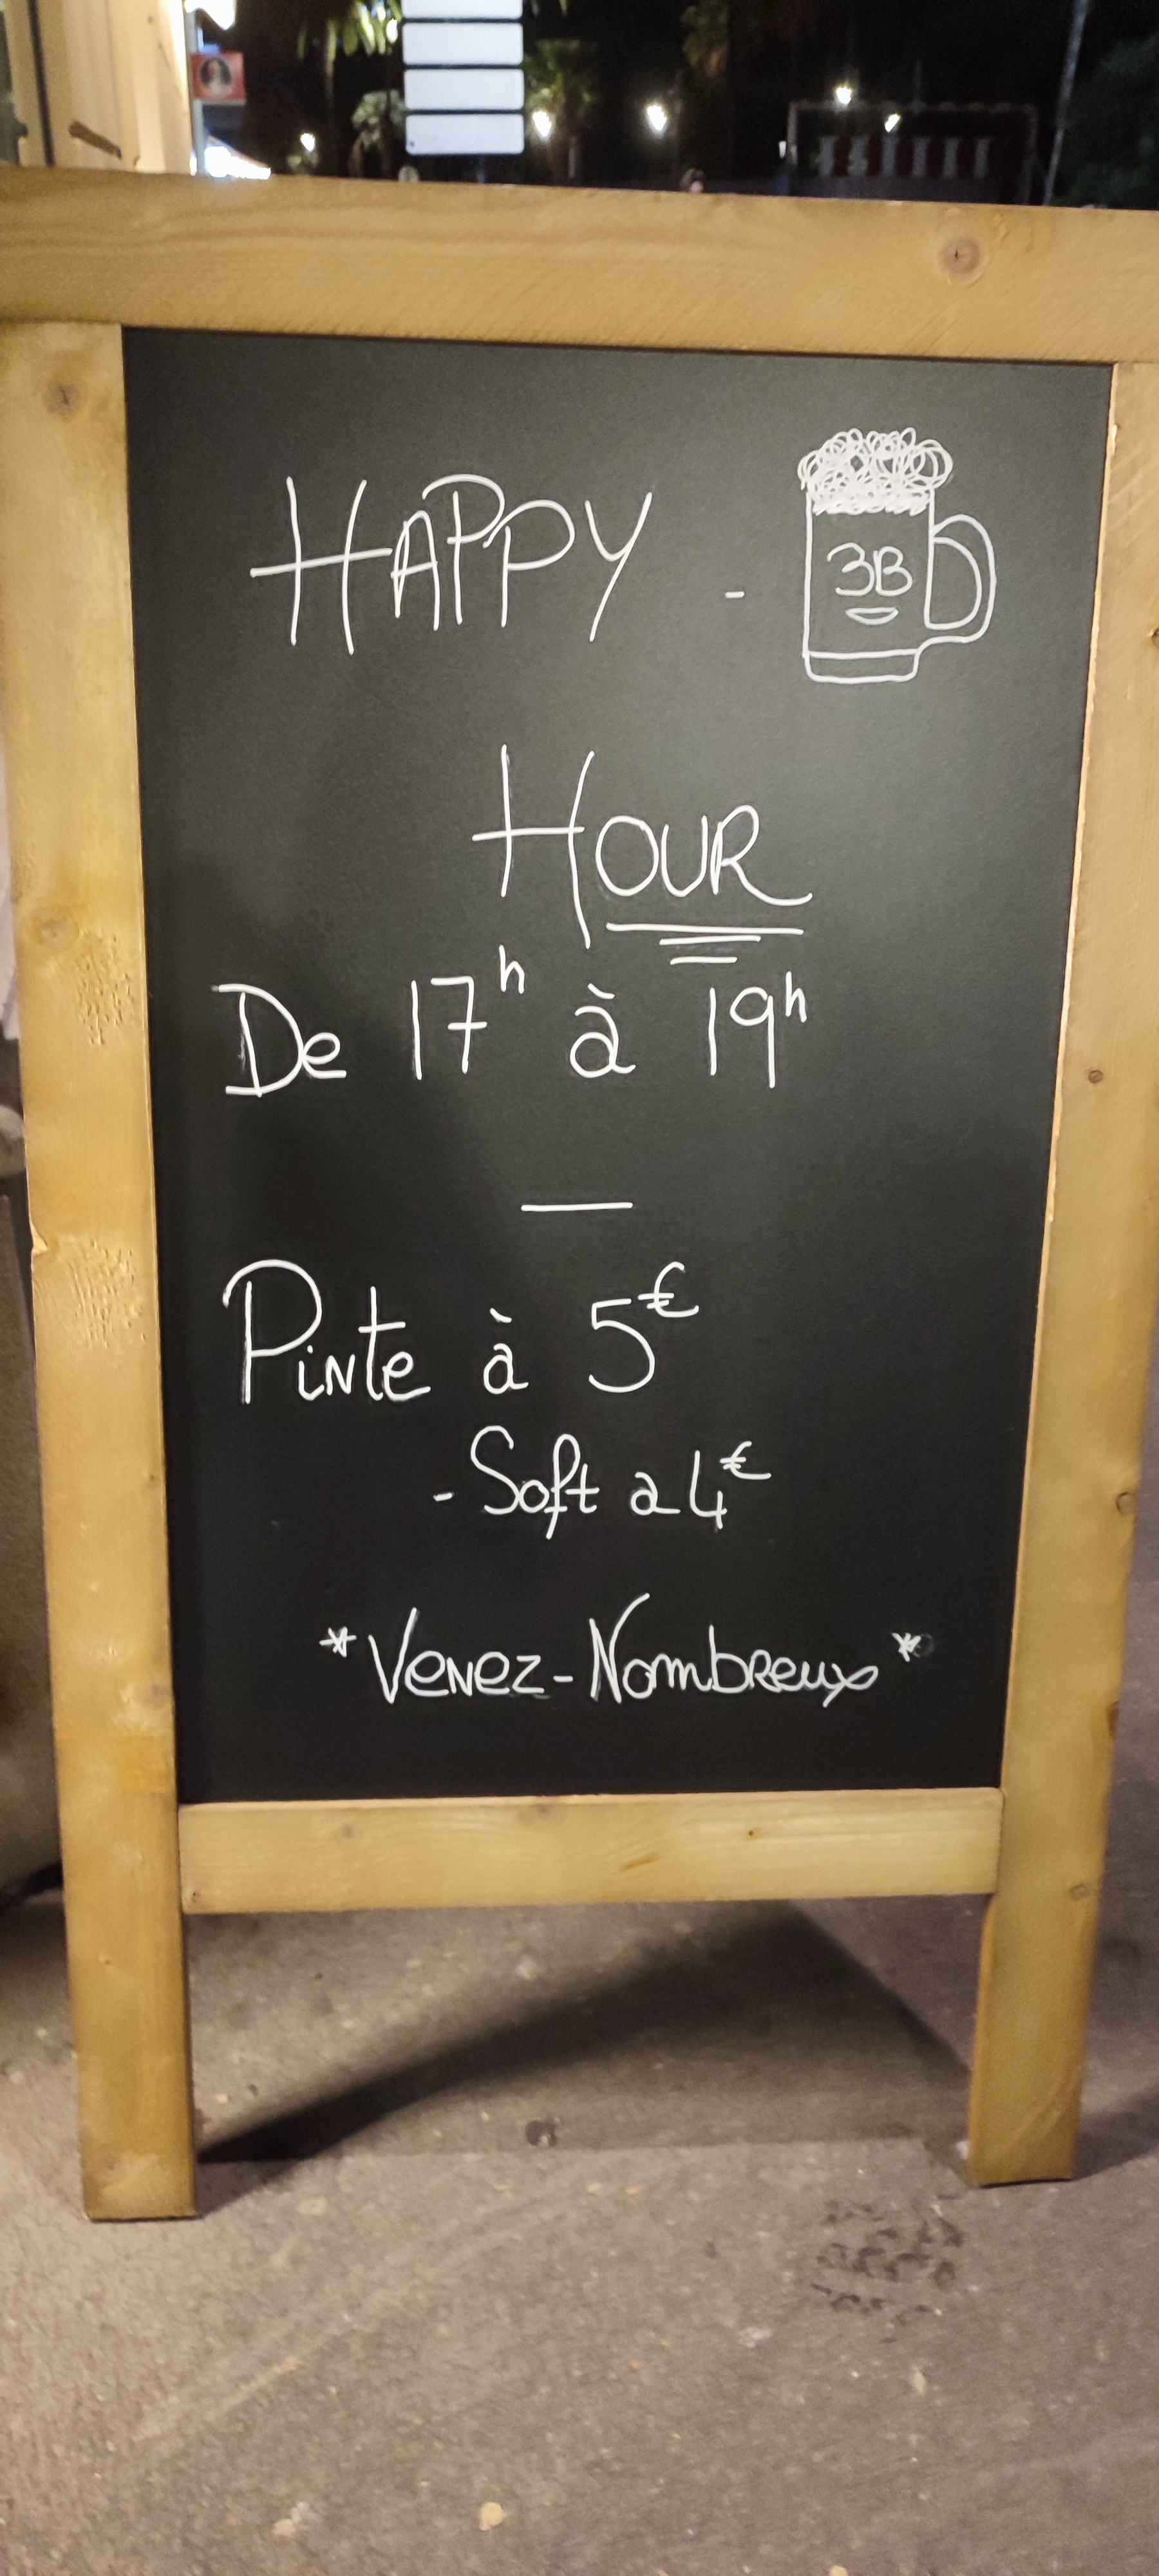 HAPPY -
3B
HOUR
De 17h à 19h
Pinte à 5€
- Soft a 4€
*Venez-Nombreux*